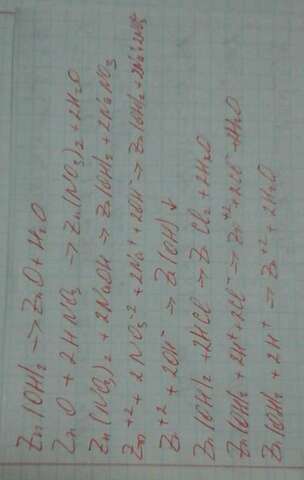 Zn(OH)₂ → ZnO + H₂O
ZnO + 2HNO₃ → Zn(NO₃)₂ + 2H₂O
Zn(NO₃)₂ + 2NaOH → Zn(OH)₂ + 2NaNO₃
Zn⁺² + 2NO₃⁻² + 2Na⁺ + 2OH⁻ → Zn(OH)₂ + 2Na⁺ + 2NO₃
Zn⁺² + 2OH⁻ → Zn(OH)↓
Zn(OH)₂ + 2HCl → ZnCl₂ + 2H₂O
Zn(OH)₂ + 2H⁺ + 2Cl⁻ → Zn⁺² + 2Cl⁻ + H₂O
Zn(OH)₂ + 2H⁺ → Zn⁺² + 2H₂O